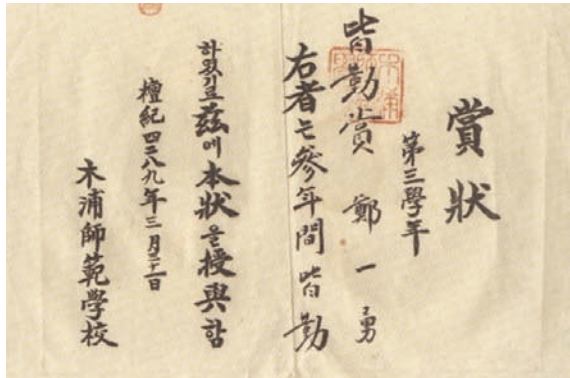 賞狀
第三學年
皆勤賞 鄭一勇
右者는 參年間 皆勤
하였기로 玆에 本狀을 授與함
檀紀四二八九年三月 日
木浦師範學校